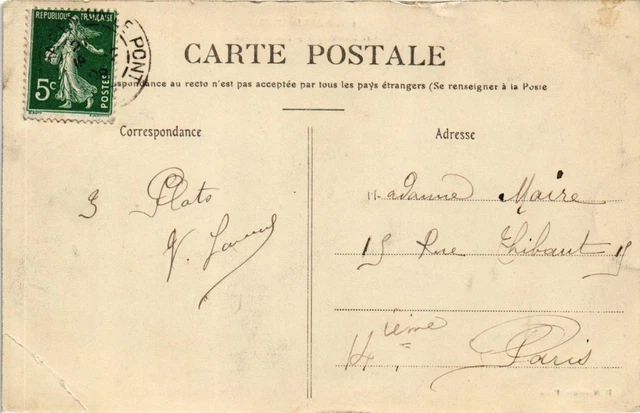 RÉPUBLIQUE FRANÇAISE
5c
POSTES
PONT
CARTE POSTALE
pondance au recto n'est pas acceptée par tous les pays étrangers (Se renseigner à la Poste
Correspondance
Adresse
3 Plats
V.
Madame Maire
15 Rue Thibaut 15
14ième Paris